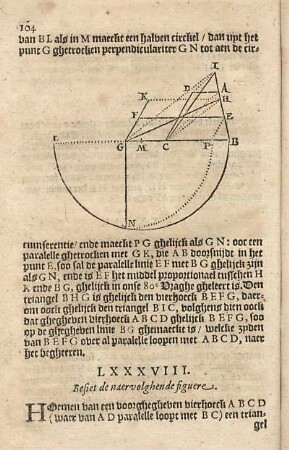 104
van BL als in M maeckt een halven circkel / dan uyt het
punt G ghetrocken perpendiculariter G N tot aen de cir-
I
K D A
H
F E
L G M C P B
N
cumferentie / ende maeckt P G ghelijck als G N: oock een
paralelle ghetrocken met G K, die A B doorsnijdt in het
punt E, soo sal de paralelle linie E F met B G ghelijck zijn
als G N, ende is E F het middel proportionael tusschen H
K ende B G, ghelijck in onse 80e Vraghe gheleert is. Den
triangel B H G is ghelijck den vierhoeck B E F G, daer-
om oock ghelijck den triangel B I C, volghens dien oock
dat ghegheven vierhoeck A B C D ghelijck B E F G, soo
op de ghegheven linie B G ghemaeckt is / welcke zyden
van B E F G over al paralelle loopen met A B C D, naer
het begheeren.
L X X X V I I I.
Besiet de naervolghende figuere.
HOemen van een voorghegheven vierhoeck A B C D
(waer van A D paralelle loopt met B C) een trian-
gel